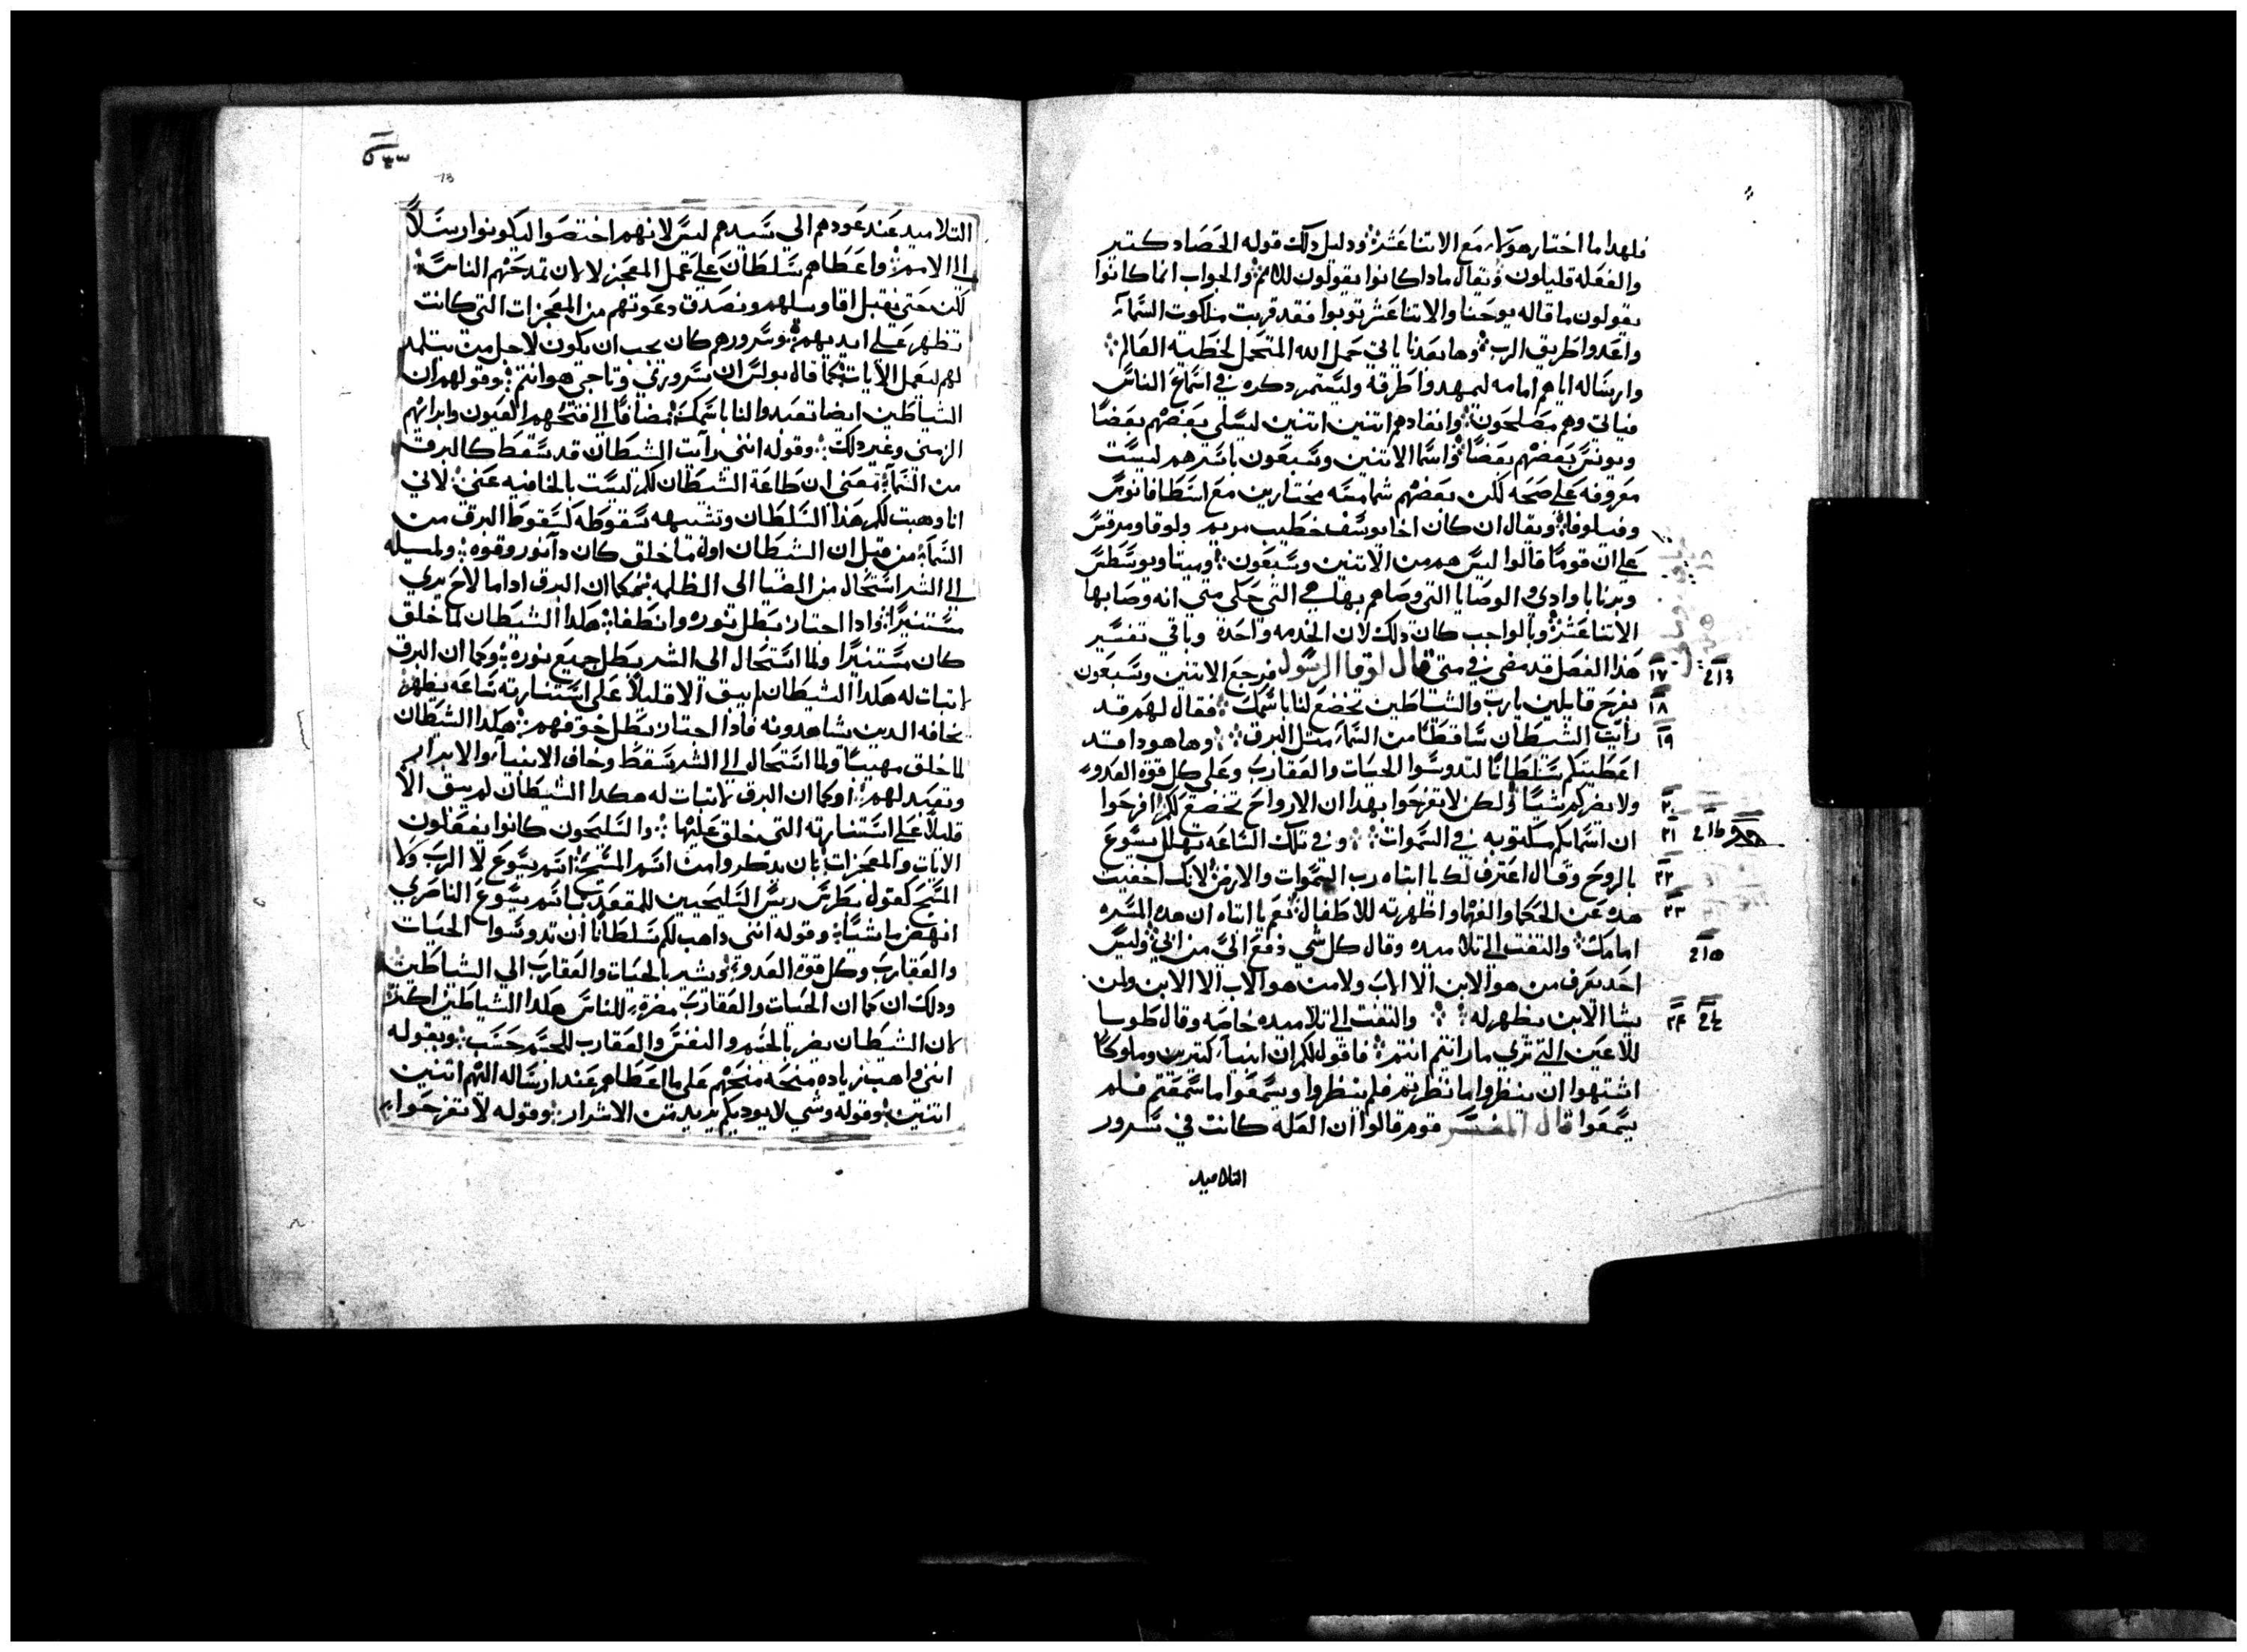 فلهدا ما اختار هولاء مع الاتنا عشر ودليل دلك قوله الحصاد كتير
والفعله قليلون ويقال مادا كانوا يقولون للامم والجواب انما كانوا
يقولون ما قاله يوحنا والاتنا عشر توبوا فقد قربت ملكوت السماء
واعدوا طريق الرب وها بعدنا ياتي حمل الله المتحمل لخطية العالم
وارساله اياهم امامه ليمهدوا طرقه وليستمر دكره في اسماع الناس
فياتي وهم مصلحون وانفادهم اتنين اتنين ليسلي بعضهم بعضا
ويونس بعضهم بعضا واسما الاتنين وسبعون باسرهم ليست
معروفه علي صحه لكن بعضهم شمامسه مختارين مع اسطافانوس
وفيلوفا ويقال ان كان اخا يوسف خطيب مريم ولوقا ومرقس
علي ان قوما قالوا ليس هم من الاتنين وسبعون
وبرنابا وادي والوصايا التي وصاهم بها هي التي حكي متي انه وصا بها
الاتنا عشر وبالواجب كان دلك لان الخدمه واحدة وباقي تفسير
هدا الفصل قد مضي في متي قال لوقا الرسول فرجع الاتنين وسبعون
بفرح قايلين يارب والشياطين تخضع لنا باسمك فقال لهم قد
رايت الشيطان ساقطا من السماء متل البرق وها هودا قد
اعطيتكم سلطانا لتدوسوا الحيات والعقارب وعلي كل قوة العدو
ولا يضركم شيا ولكن لا تفرحوا بهدا ان الارواح تخضع لكم افرحوا
ان اسمايكم مكتوبه في السموات وفي تلك الساعه تهلل يسوع
بالروح وقال اعترف لك يا ابتاه رب السموات والارض لانك اخفيت
هده عن الحكما والفهما واظهرته للاطفال نعم يا ابتاه ان هده المسره
امامك والتفت الي تلاميده وقال كل شي دفع الي من ابي وليس
احد يعرف من هو الابن الا الاب ولا من هو الاب الا الابن ولمن
يشا الابن يظهر له والتفت الي تلاميده خاصه وقال طوبا
للاعين التي تري ما رايتم انتم فاقول لكم ان انبياء كتيرين وملوكا
اشتهوا ان ينظروا ما نظرتم فلم ينظروا ويسمعوا ما سمعتم فلم
يسمعوا قال المفسر قوم قالوا ان العله كانت في سرور
التلاميد
١٧
١٨
١٩
٢٠
٢١
٢٢
٢٣
٢٤
التلاميد عند عودهم الي سيدهم ليس لانهم اختصوا ليكونوا رسلا
الي الامم واعطاهم سلطان علي عمل المعجز لا لان تمدحهم الناس
لكن حتي تقبل اقاويلهم وتصدق دعوتهم من المعجزات التي كانت
تظهر علي ايديهم وسرورهم كان يجب ان يكون لاجل من يتلمد
لهم لعمل الايات كما قال بولس ان سروري وتاجي هو انتم وقولهم ان
الشياطين ايضا تعبدوا لنا باسمك مضافا الي فتحهم العيون وابرائهم
الزمني وغير دلك وقوله انني رايت الشيطان قد سقط كالبرق
من السماء يعني ان طاعة الشيطان لكم ليست بالخافيه عني لاني
انا وهبت لكم هدا السلطان وتشبيهه سقوطه لسقوط البرق من
السماء من قبل ان الشيطان اول ما خلق كان دا نور وقوه ولميله
الي الشر استحال من الضيا الي الظلمه فكما ان البرق ادا ما لاح يري
مستنيرا وادا اجتاز بطل نوره وانطفا هكدا الشيطان لما خلق
كان مستنيرا ولما استحال الي الشر بطل جميع نوره وكما ان البرق
لا تبات له هكدا الشيطان لم يبق الا قليلا علي استنارته ساعه يظهر
يخافه الدين يشاهدونه فادا اجتاز بطل خوفهم هكدا الشيطان
لما خلق مهيبا ولما استحال الي الشر سقط وخاف الانبياء والابرار
وتعبد لهم وكما ان البرق لا تبات له هكدا الشيطان لم يبق الا
قليلا علي استنارته التي خلق عليها والسليحون كانوا يفعلون
الايات والمعجزات بان يدكروا من اسم المسيح اسم يسوع لا الرب ولا
المسيح كقول بطرس ريس السليحيين للمقعد باسم يسوع الناصري
انهض ماشيا وقوله انني داهب لكم سلطانا ان تدوسوا الحيات
والعقارب وكل قوة العدو يشير بالحيات والعقارب الي الشياطين
ودلك ان كما ان الحيات والعقارب مضرة للناس هكدا الشياطين اكتر
لان الشيطان يضر بالجسم والنفس والعقارب للجسم حسب وبقوله
انني واهب زياده منحه منحهم علي ما اعطاهم عند ارساله اليهم اتنين
اتنين وقوله وشي لا يوديكم يريد من الاشرار وقوله لا تفرحوا